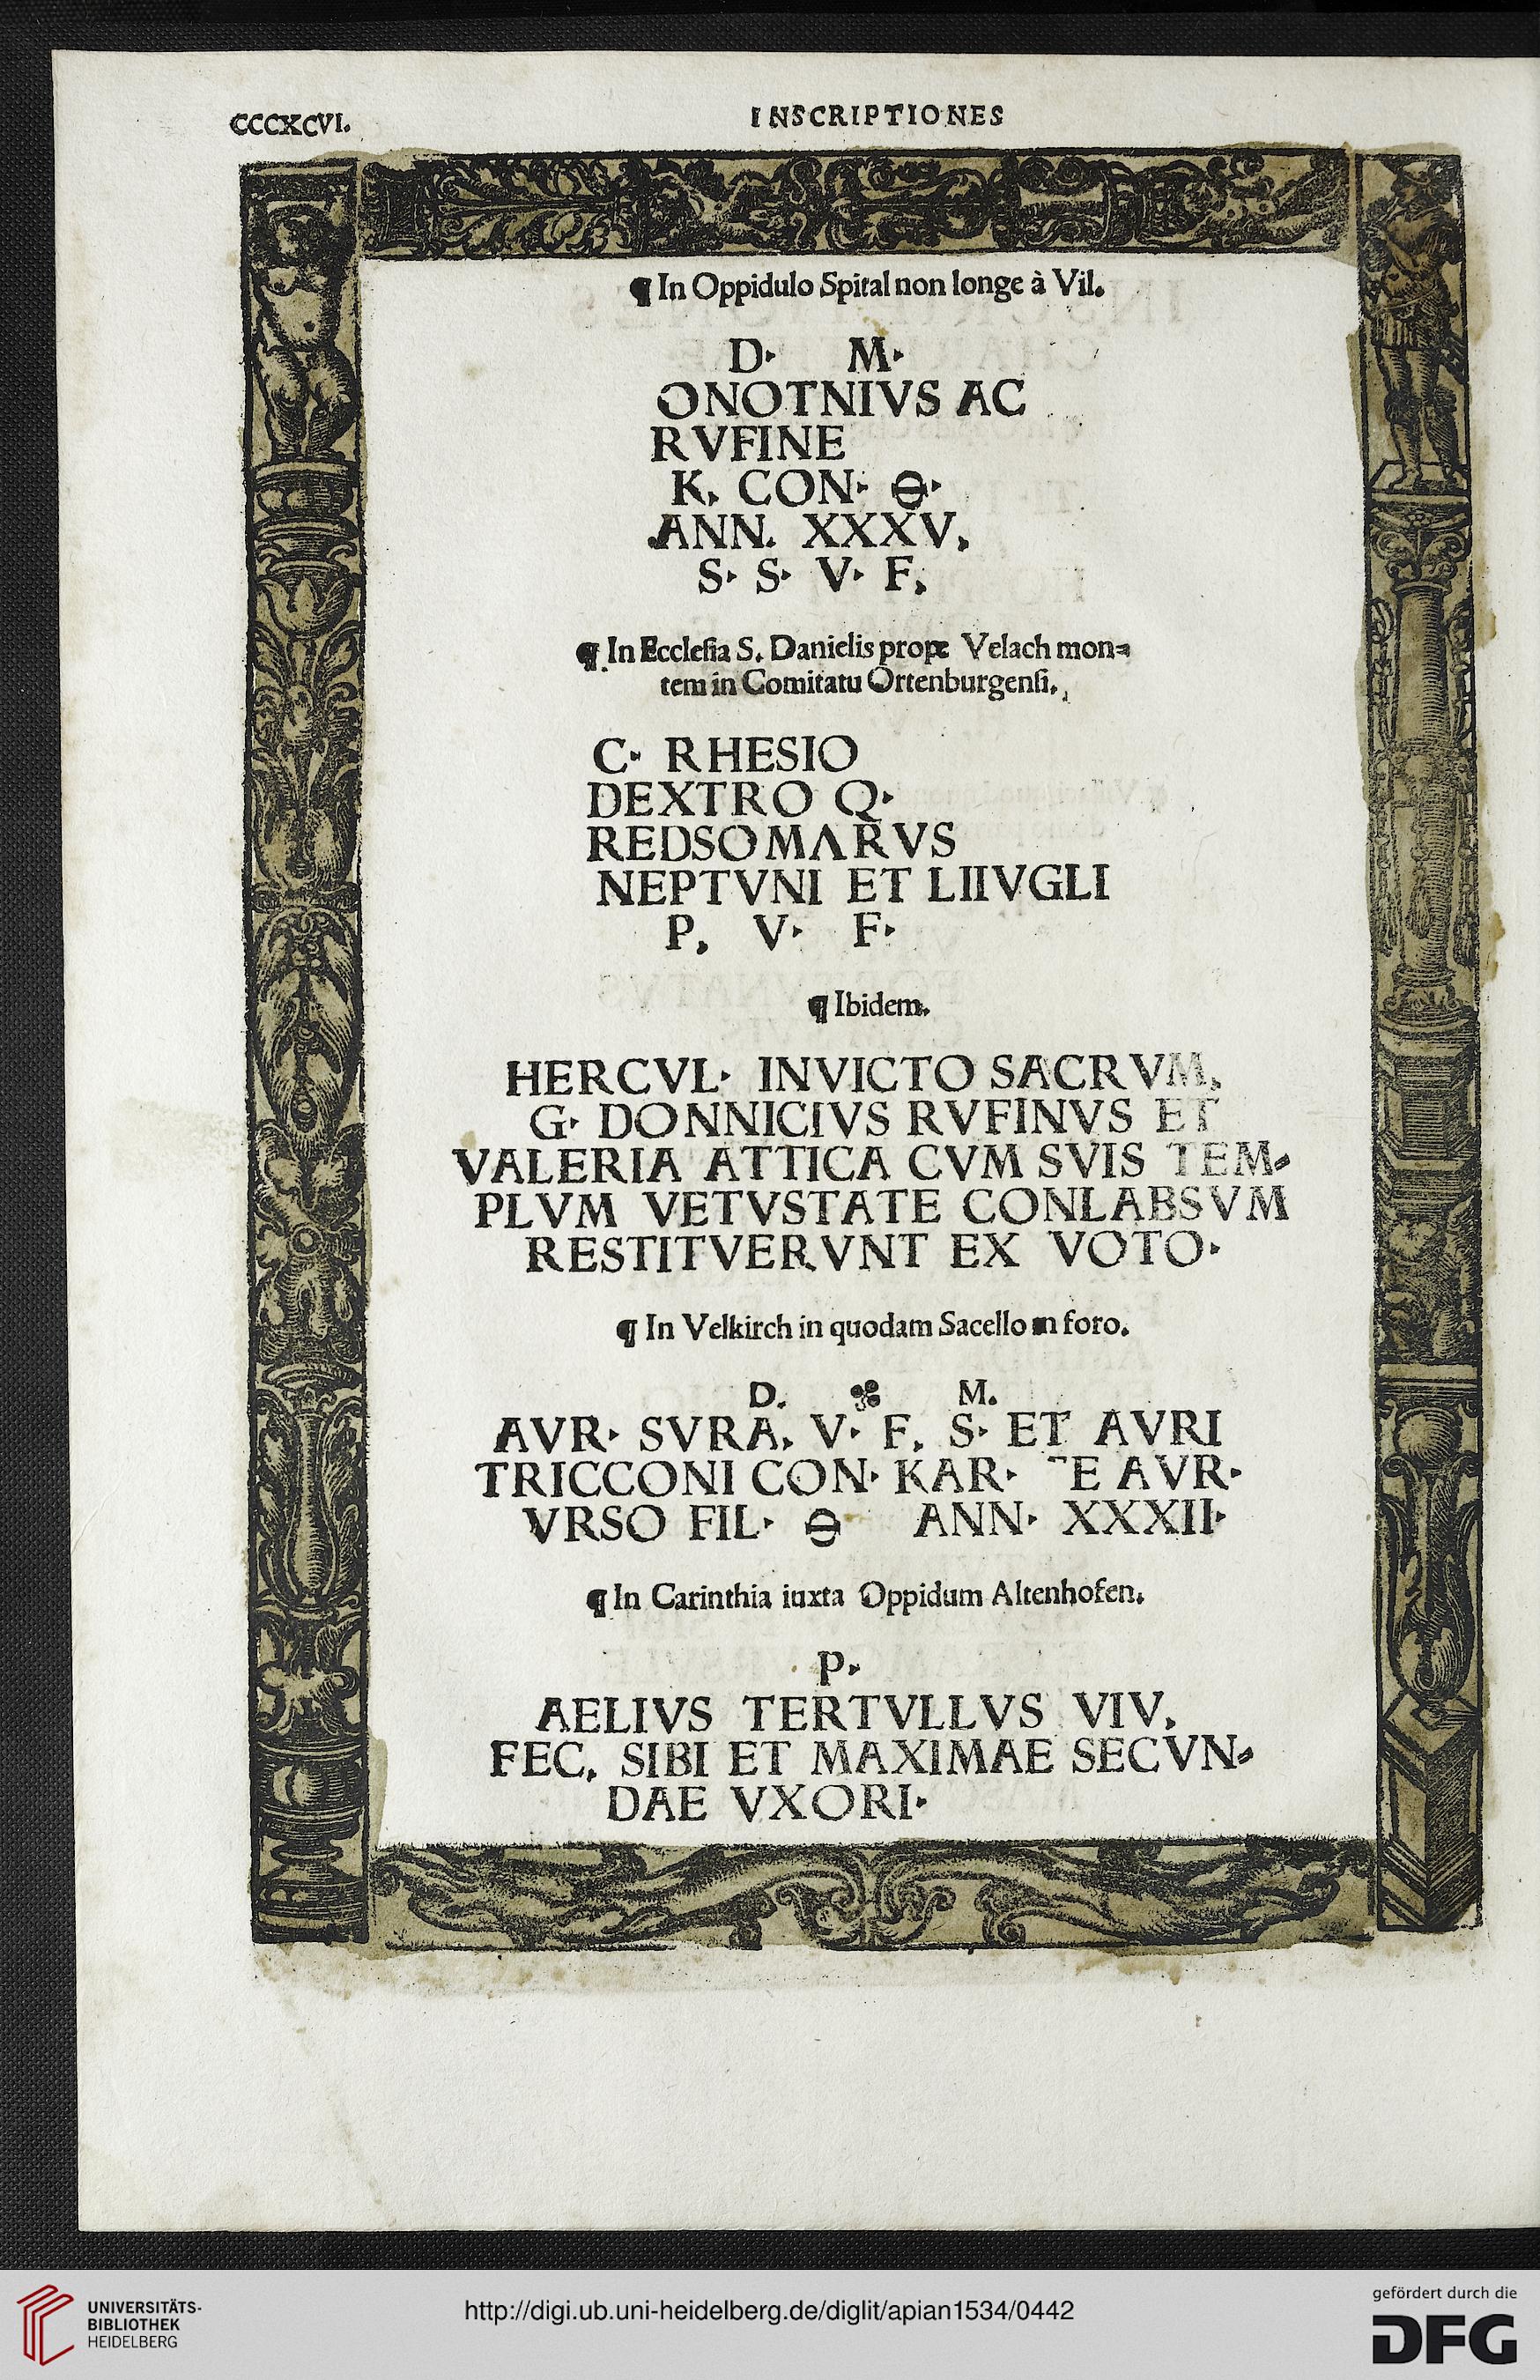 CCCXCVI.
INSCRIPTIONES
¶ In Oppidulo Spital non longe à Vil.
D· M·
ONOTNIVS AC
RVFINE
K, CON· ꝋ·
ANN. XXXV,
S· S· V· F,
¶ In Ecclesia S. Danielis prope Velach mon=
tem in Comitatu Ortenburgensi.
C· RHESIO
DEXTRO Q·
REDSOMΛRVS
NEPTVNI ET LIIVGLI
P, V· F·
¶ Ibidem.
HERCVL· INVICTO SACRVM,
G· DONNICIVS RVFINVS ET
VALERIA ATTICA CVM SVIS TEM=
PLVM VETVSTATE CONLABSVM
RESTITVERVNT EX VOTO·
¶ In Velkirch in quodam Sacello in foro.
D. M.
AVR· SVRA, V· F, S· ET AVRI
TRICCONI CON· KAR· E AVR·
VRSO FIL· ꝋ ANN· XXXII·
¶ In Carinthia iuxta Oppidum Altenhofen.
P·
AELIVS TERTVLLVS VIV,
FEC, SIBI ET MAXIMAE SECVN=
DAE VXORI·
UNIVERSITÄTS-
BIBLIOTHEK
HEIDELBERG
http://digi.ub.uni-heidelberg.de/diglit/apian1534/0442
gefördert durch die
DFG